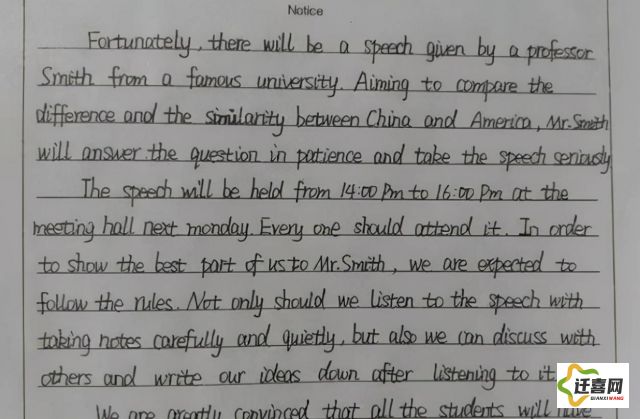 Notice
Fortunately, there will be a speech given by a professor
Smith from a famous university. Aiming to compare the
difference and the similarity between China and America, Mr.Smith
will answer the question in patience and take the speech seriously
The speech will be held from 14:00 Pm to 16:00 Pm at the
meeting hall next monday. Every one should attend it. In order
to show the best part of us to Mr.Smith, we are expected to
follow the rules. Not only should we listen to the speech with
taking notes carefully and quietly, but also we can discuss with
others and write our ideas down after listening to it
We are greatly convinced that all the students will have
迁喜网
QIANXIWANG